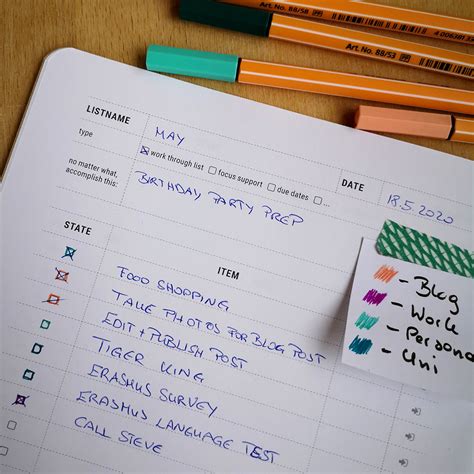 Art.-No. 88/58
Art.-No. 88/53
LISTNAME
MAY
type
work through list focus support due dates ...
DATE
18.5.2020
no matter what,
accomplish this:
BIRTHDAY PARTY PREP
STATE
ITEM
FOOD SHOPPING
TAKE PHOTOS FOR BLOG POST
EDIT + PUBLISH POST
TIGER KING
ERASMUS SURVEY
ERASMUS LANGUAGE TEST
CALL STEVE
- Blog
- Work
- Persona
- Uni